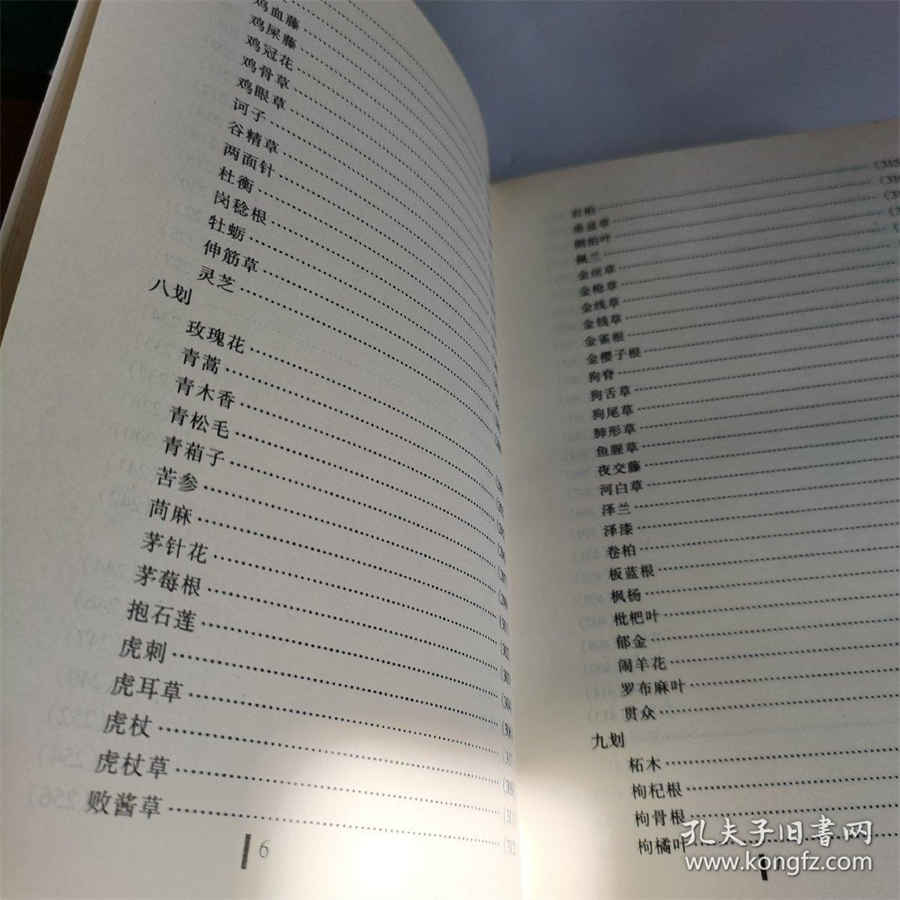 鸡血藤
鸡屎藤
鸡冠花
鸡骨草
鸡眼草
诃子
谷精草
两面针
杜衡
岗稔根
牡蛎
伸筋草
灵芝
八划
玫瑰花
青蒿
青木香
青松毛
青葙子
苦参
苘麻
茅针花
茅莓根
抱石莲
虎刺
虎耳草
虎杖
虎杖草
败酱草
6
岩柏
垂盆草
侧柏叶
佩兰
金丝草
金枪草
金线草
金钱草
金雀根
金樱子根
狗脊
狗舌草
狗尾草
肺形草
鱼腥草
夜交藤
河白草
泽兰
泽漆
卷柏
板蓝根
枫杨
枇杷叶
郁金
闹羊花
罗布麻叶
贯众
九划
柘木
枸杞根
枸骨根
枸橘叶
孔夫子旧書网
www.kongfz.com